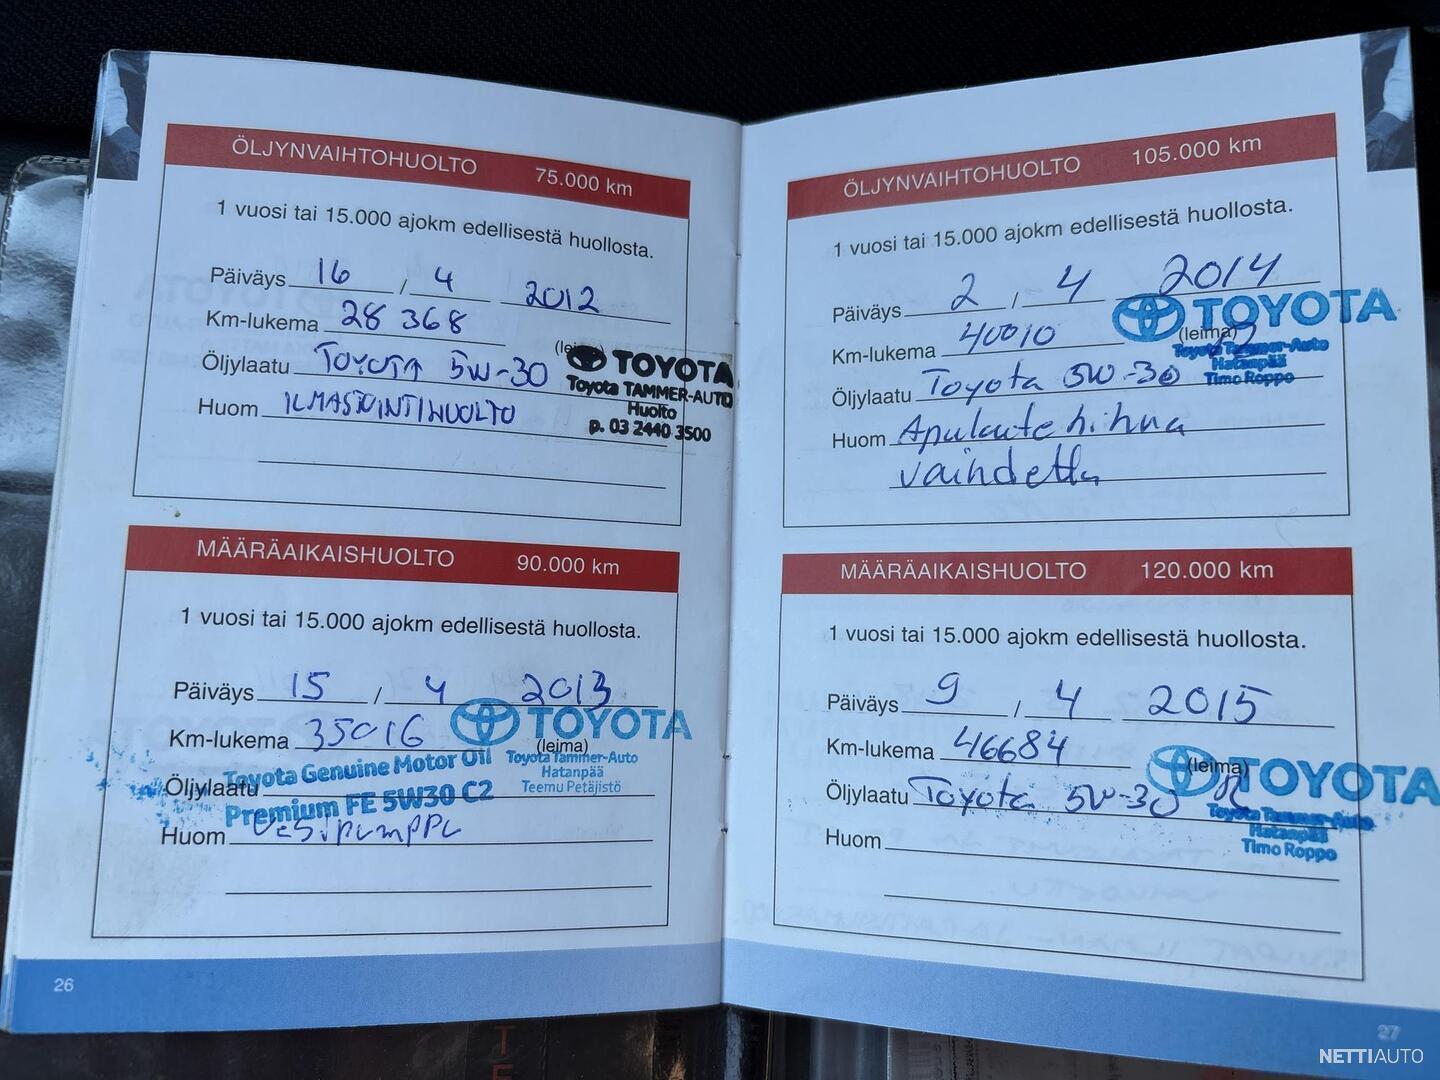 ÖLJYNVAIHTOHUOLTO 75.000 km
1 vuosi tai 15.000 ajokm edellisestä huollosta.
Päiväys 16 / 4 2012
Km-lukema 28 368
(leima)
Öljylaatu TOYOTA 5W-30
Huom ILMASTOINTIHUOLTO
TOYOTA
Toyota TAMMER-AUTO
Huolto
p. 03 2440 3500
MÄÄRÄAIKAISHUOLTO 90.000 km
1 vuosi tai 15.000 ajokm edellisestä huollosta.
Päiväys 15 / 4 2013
Km-lukema 35016
(leima)
TOYOTA
Toyota Tammer-Auto
Hatanpää
Teemu Petäjistö
Öljylaatu
Toyota Genuine Motor Oil
Premium FE 5W30 C2
Huom Vesipumppu
26
ÖLJYNVAIHTOHUOLTO 105.000 km
1 vuosi tai 15.000 ajokm edellisestä huollosta.
Päiväys 2 / 4 2014
Km-lukema 40010
(leima)
TOYOTA
Toyota Tammer-Auto
Hatanpää
Timo Roppo
Öljylaatu Toyota 5W-30
Huom Apulaitehihna
vaihdettu
MÄÄRÄAIKAISHUOLTO 120.000 km
1 vuosi tai 15.000 ajokm edellisestä huollosta.
Päiväys 9 / 4 2015
Km-lukema 46684
(leima)
TOYOTA
Toyota Tammer-Auto
Hatanpää
Timo Roppo
Öljylaatu Toyota 5W-30
Huom
27
NETTIAUTO